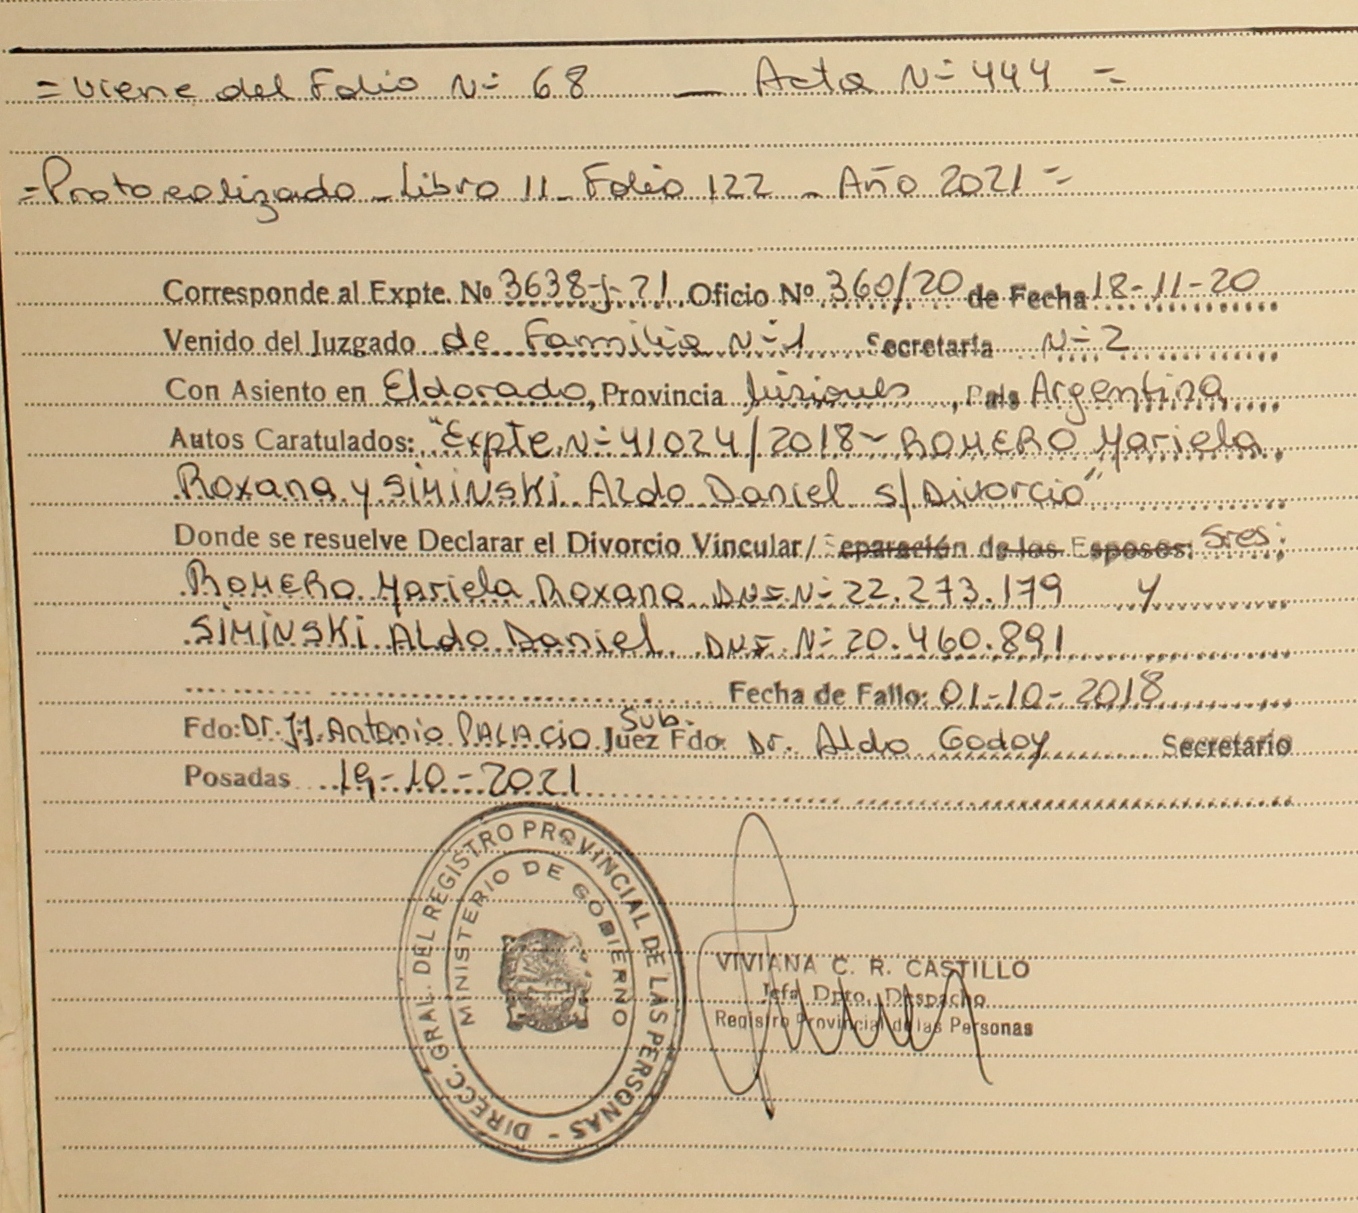 = Viene del Folio Nº 68 — Acta Nº 444 =
= Protocolizado - Libro 11 - Folio 122 - Año 2021 =
Corresponde al Expte. Nº 3638-J-21 Oficio Nº 360/20 de Fecha 18-11-20
Venido del Juzgado de Familia Nº 1 Secretaria Nº 2
Con Asiento en Eldorado, Provincia Misiones, Pais Argentina
Autos Caratulados: "Expte. Nº 41024/2018 - ROMERO Mariela
Roxana y SIMINSKI Aldo Daniel s/Divorcio"
Donde se resuelve Declarar el Divorcio Vincular/ Separación de los Esposos: Sres:
ROMERO Mariela Roxana DNI Nº 22.273.179 y
SIMINSKI Aldo Daniel DNI Nº 20.460.891
Fecha de Fallo: 01-10-2018
Fdo: Dr. J.J. Antonio PALACIO Juez Sub. Fdo: Dr. Aldo Godoy Secretario
Posadas 19-10-2021
DIRECC. GRAL. DEL REGISTRO PROVINCIAL DE LAS PERSONAS -
MINISTERIO DE GOBIERNO
VIVIANA C. R. CASTILLO
Jefa Dpto. Despacho
Registro Provincial de las Personas